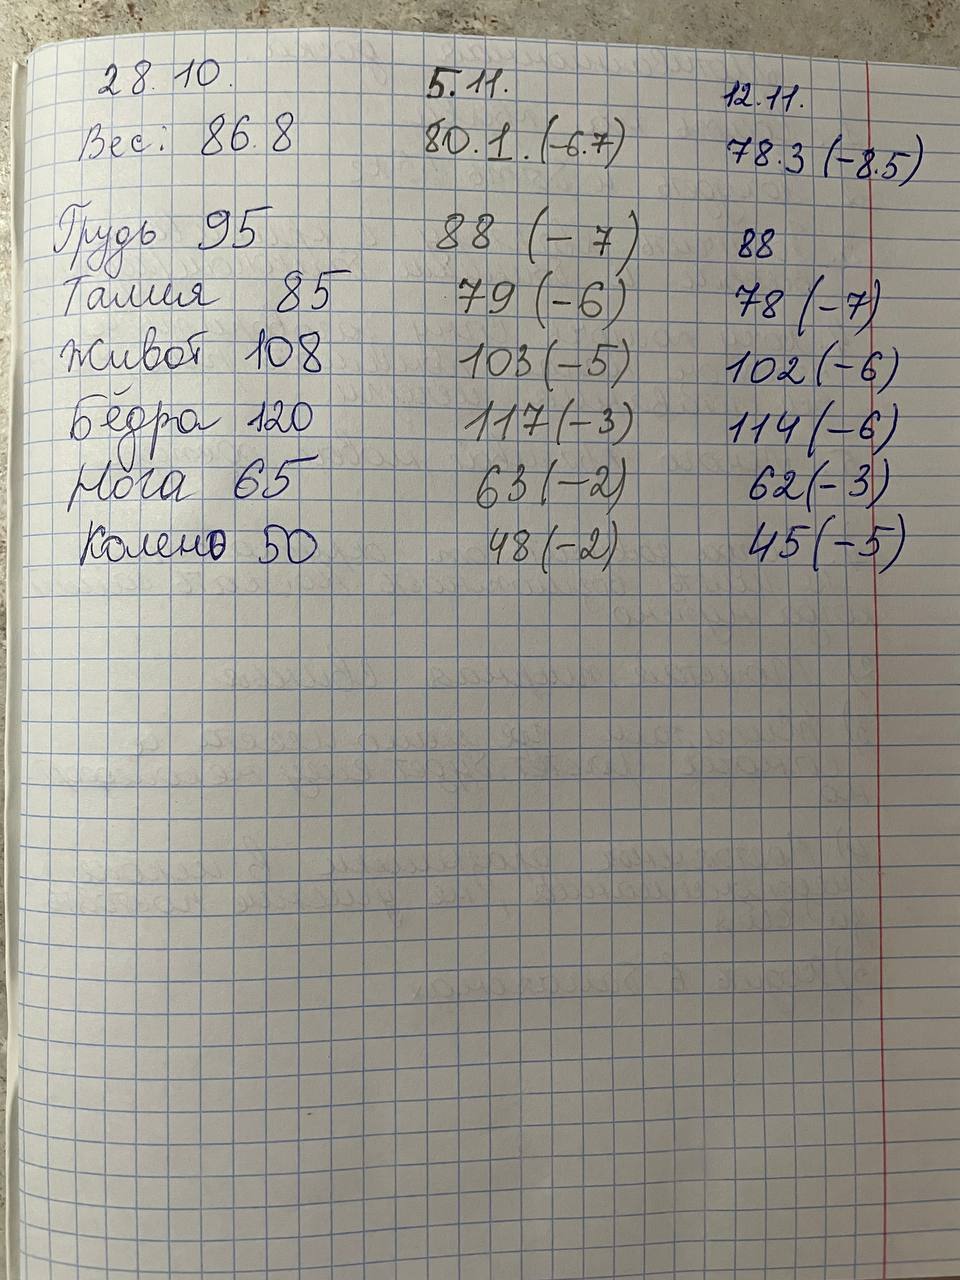 28.10. 5.11. 12.11.
Вес: 86.8 80.1. (-6.7) 78.3 (-8.5)
Грудь 95 88 (-7) 88
Талия 85 79 (-6) 78 (-7)
Живот 108 103 (-5) 102 (-6)
Бёдра 120 117 (-3) 114 (-6)
Нога 65 63 (-2) 62 (-3)
Колено 50 48 (-2) 45 (-5)